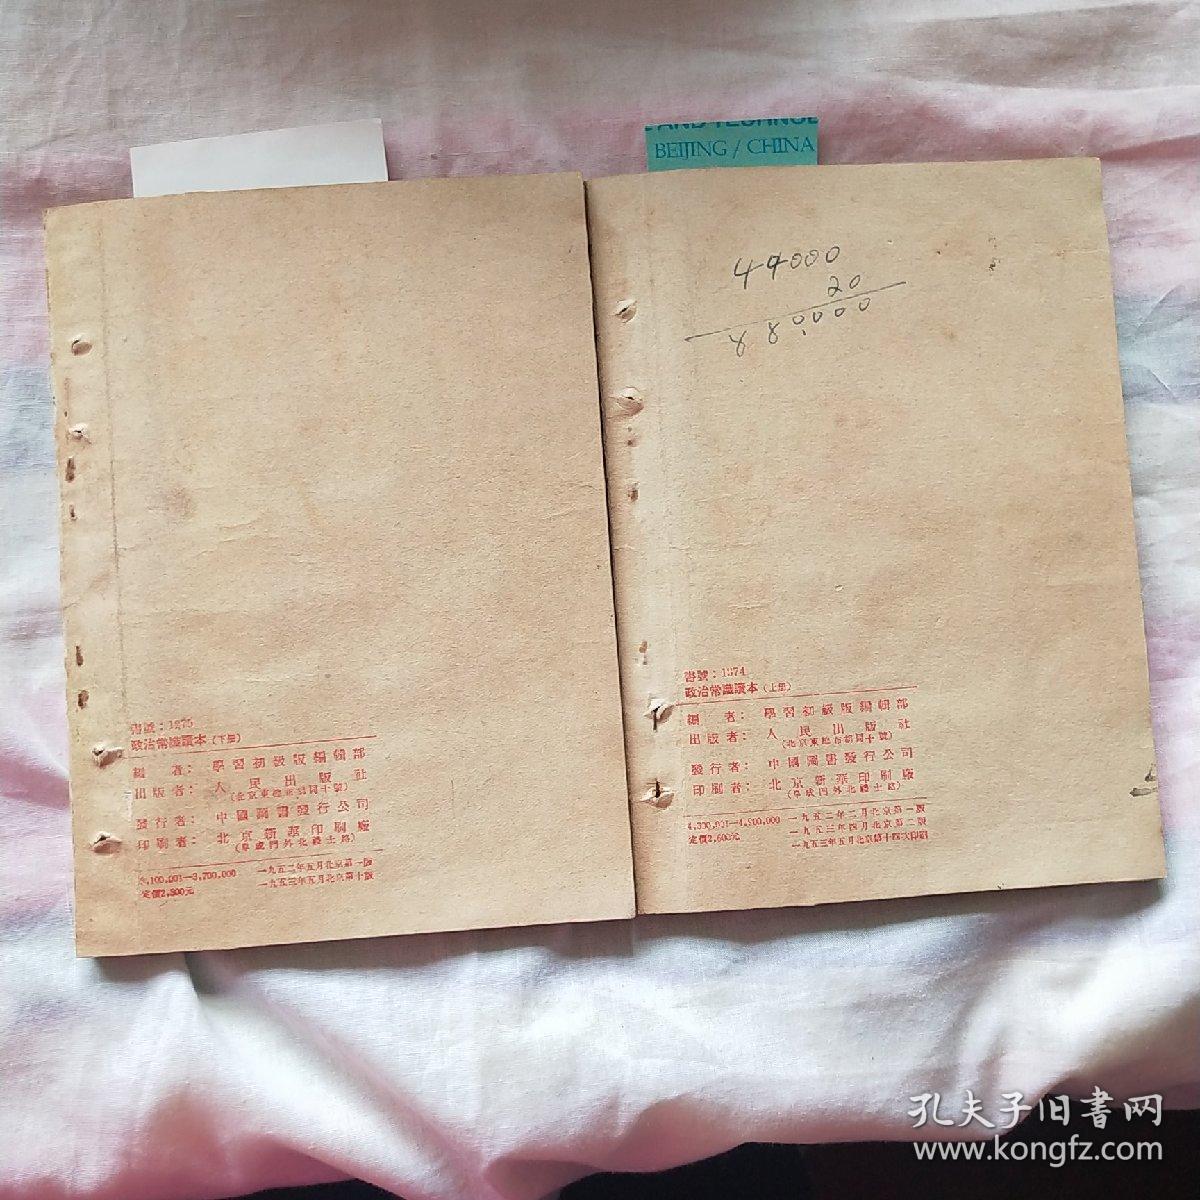 書號：1275
政治常識讀本（下册）
編者：學習初級版編輯部
出版者：人民出版社
（北京東總布胡同十號）
發行者：中國圖書發行公司
印刷者：北京新華印刷廠
（阜成門外北禮士路）
3,100,001—3,700,000 一九五二年五月北京第一版
定價2,800元 一九五三年五月北京第十版
E AND TECHNOL
BEIJING / CHINA
44000
20
880000
書號：1274
政治常識讀本（上册）
編者：學習初級版編輯部
出版者：人民出版社
（北京東總布胡同十號）
發行者：中國圖書發行公司
印刷者：北京新華印刷廠
（阜成門外北禮士路）
一九五二年二月北京第一版
4,300,001—4,900,000 一九五三年四月北京第二版
定價2,600元 一九五三年五月北京第十四次印刷
孔夫子旧書网
www.kongfz.com